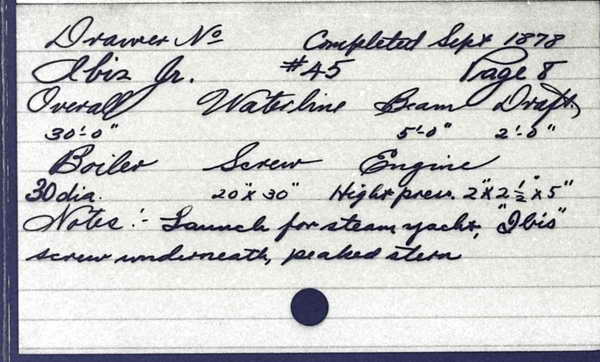 Drawer No Completed Sept 1878
Ibis Jr. #45 Page 8
Overall Waterline Beam Draft
30'-0" 5'-0" 2'-0"
Boiler Screw Engine
30 dia. 20" x 30" High press. 2" x 2 1/2" x 5"
Notes :- Launch for steam yacht, "Ibis"
screw underneath, peaked stern